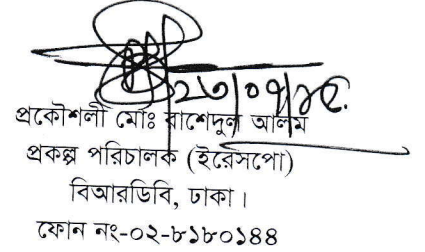 ২৩|০৭|১৫.
প্রকৌশলী মোঃ রাশেদুল আলম
প্রকল্প পরিচালক (ইরেসপো)
বিআরডিবি, ঢাকা।
ফোন নং-০২-৮১৮০১৪৪